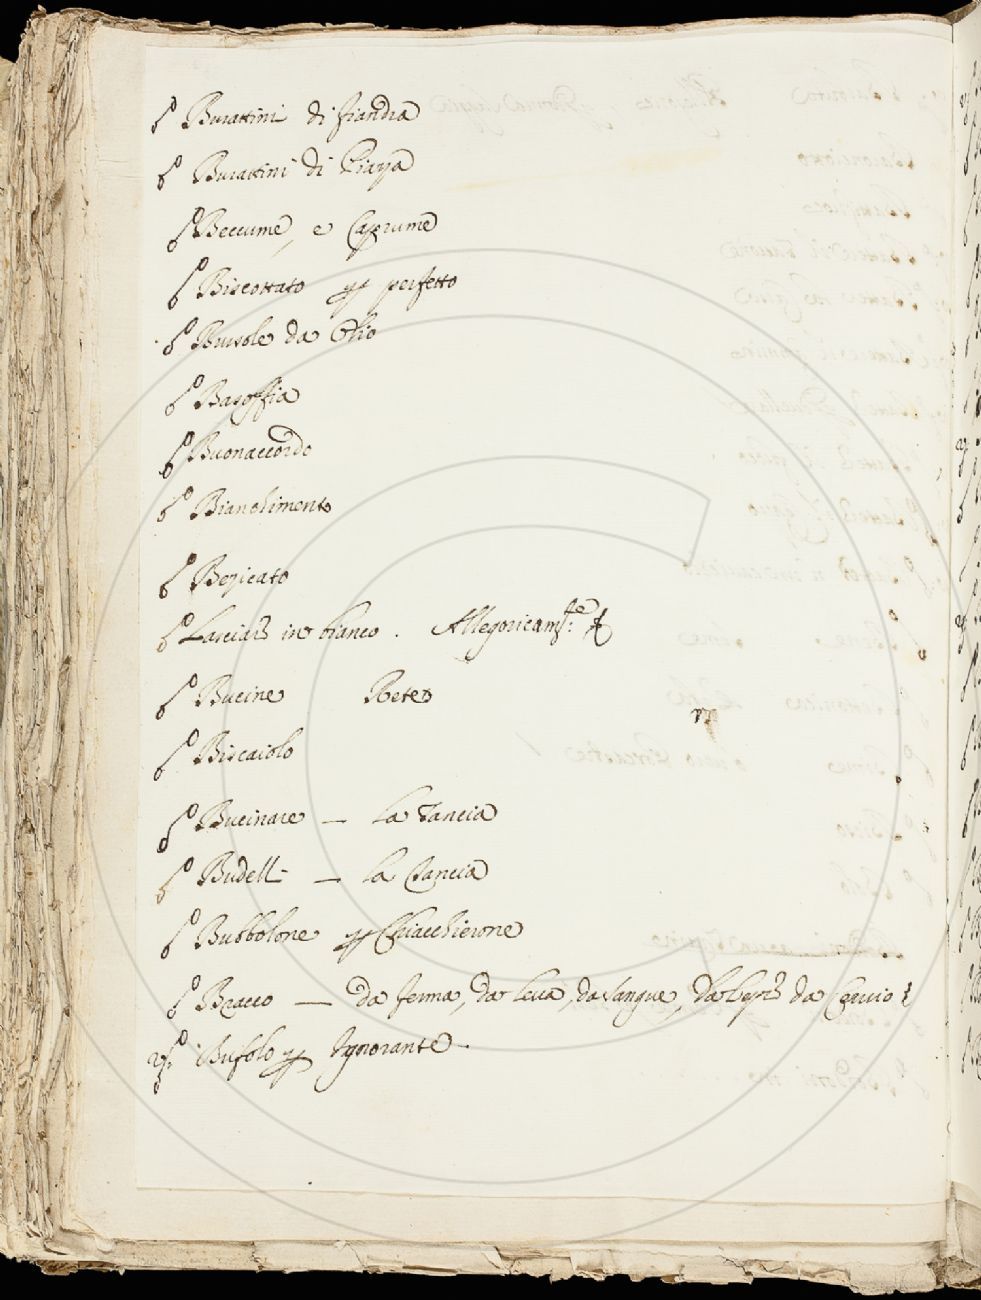 Burattini di fiandra
Burattini di Piaza
Beccume, e Caprume
Biscottato p perfetto
Bussole da Olio
Basoffia
Buonaccordo
Bianchimento
Lasciare in bianco. Allegoricam:te
Bucine Rete
Biscaiolo
Bucinare — La Tancia
Budell- — La Tancia
Bubbolone p Chiacchierone
Bracco — da ferma, da leva, da sangue, da da Cervio
Bufolo p Ignorante